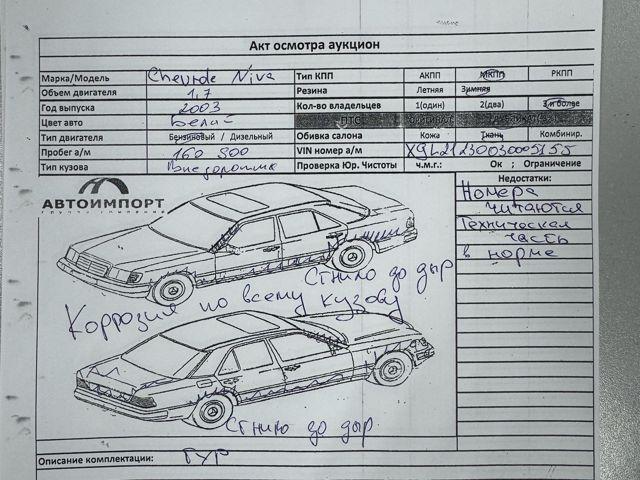 Акт осмотра аукцион
Марка/Модель Chevrole Niva Тип КПП АКПП МКПП РКПП
Объем двигателя 1,7 Резина Летняя Зимняя
Год выпуска 2003 Кол-во владельцев 1(один) 2(два) 3 и более
Цвет авто Белый ПТС
Тип двигателя Бензиновый / Дизельный Обивка салона Кожа Ткань Комбинир.
Пробег а/м 160 900 VIN номер а/м X9L21230030005155
Тип кузова Внедорожник Проверка Юр. Чистоты ч.м.г.: Ок ; Ограничение
АВТОИМПОРТ
ГРУППА КОМПАНИЙ
Недостатки:
Номера
читаются
Техническая
часть
в норме
Сгнило до дыр
Коррозия по всему кузову
Сгнило до дыр
Описание комплектации: ГУР